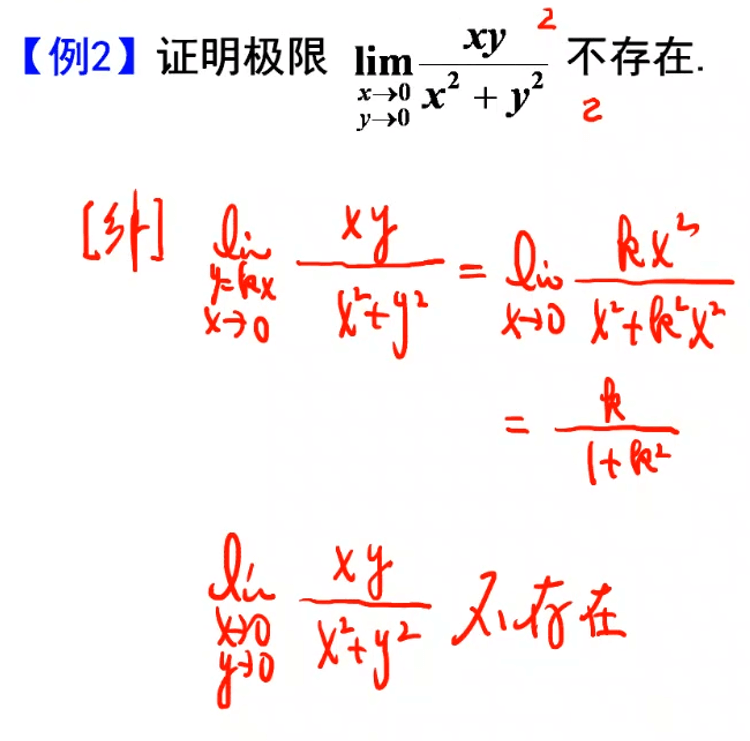 【例2】证明极限 lim x→0 y→0 xy/(x² + y²) 不存在. 2 2
[纤] lim y=kx x→0 xy/(x²+y²) = lim x→0 kx²/(x²+k²x²)
= k/(1+k²)
lim x→0 y→0 xy/(x²+y²) 不存在